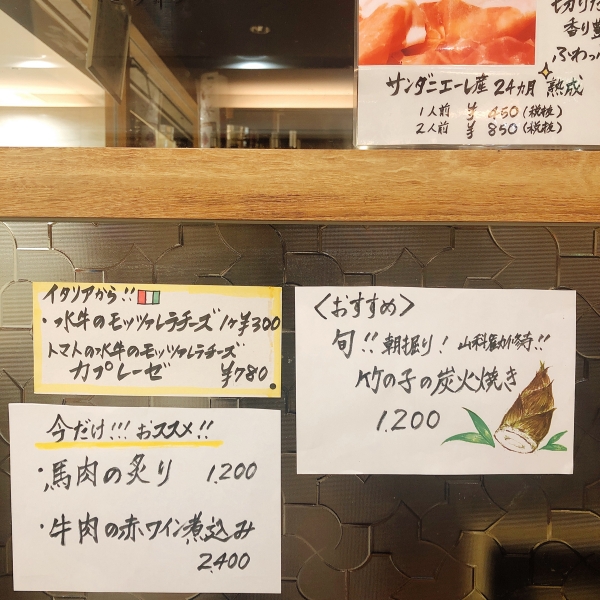 切りた
香り豊
ふわっ
サンダニエーレ産 24ヵ月 熟成
1人前 ¥450(税抜)
2人前 ¥850(税抜)
イタリアから!!
・水牛のモッツァレラチーズ 1ヶ¥300
トマトの水牛のモッツァレラチーズ
カプレーゼ ¥780.
<おすすめ>
旬!! 朝掘り! 山科勧修寺!!
竹の子の炭火焼き
1.200
今だけ!!! おススメ!!
・馬肉の炙り 1.200
・牛肉の赤ワイン煮込み
2.400